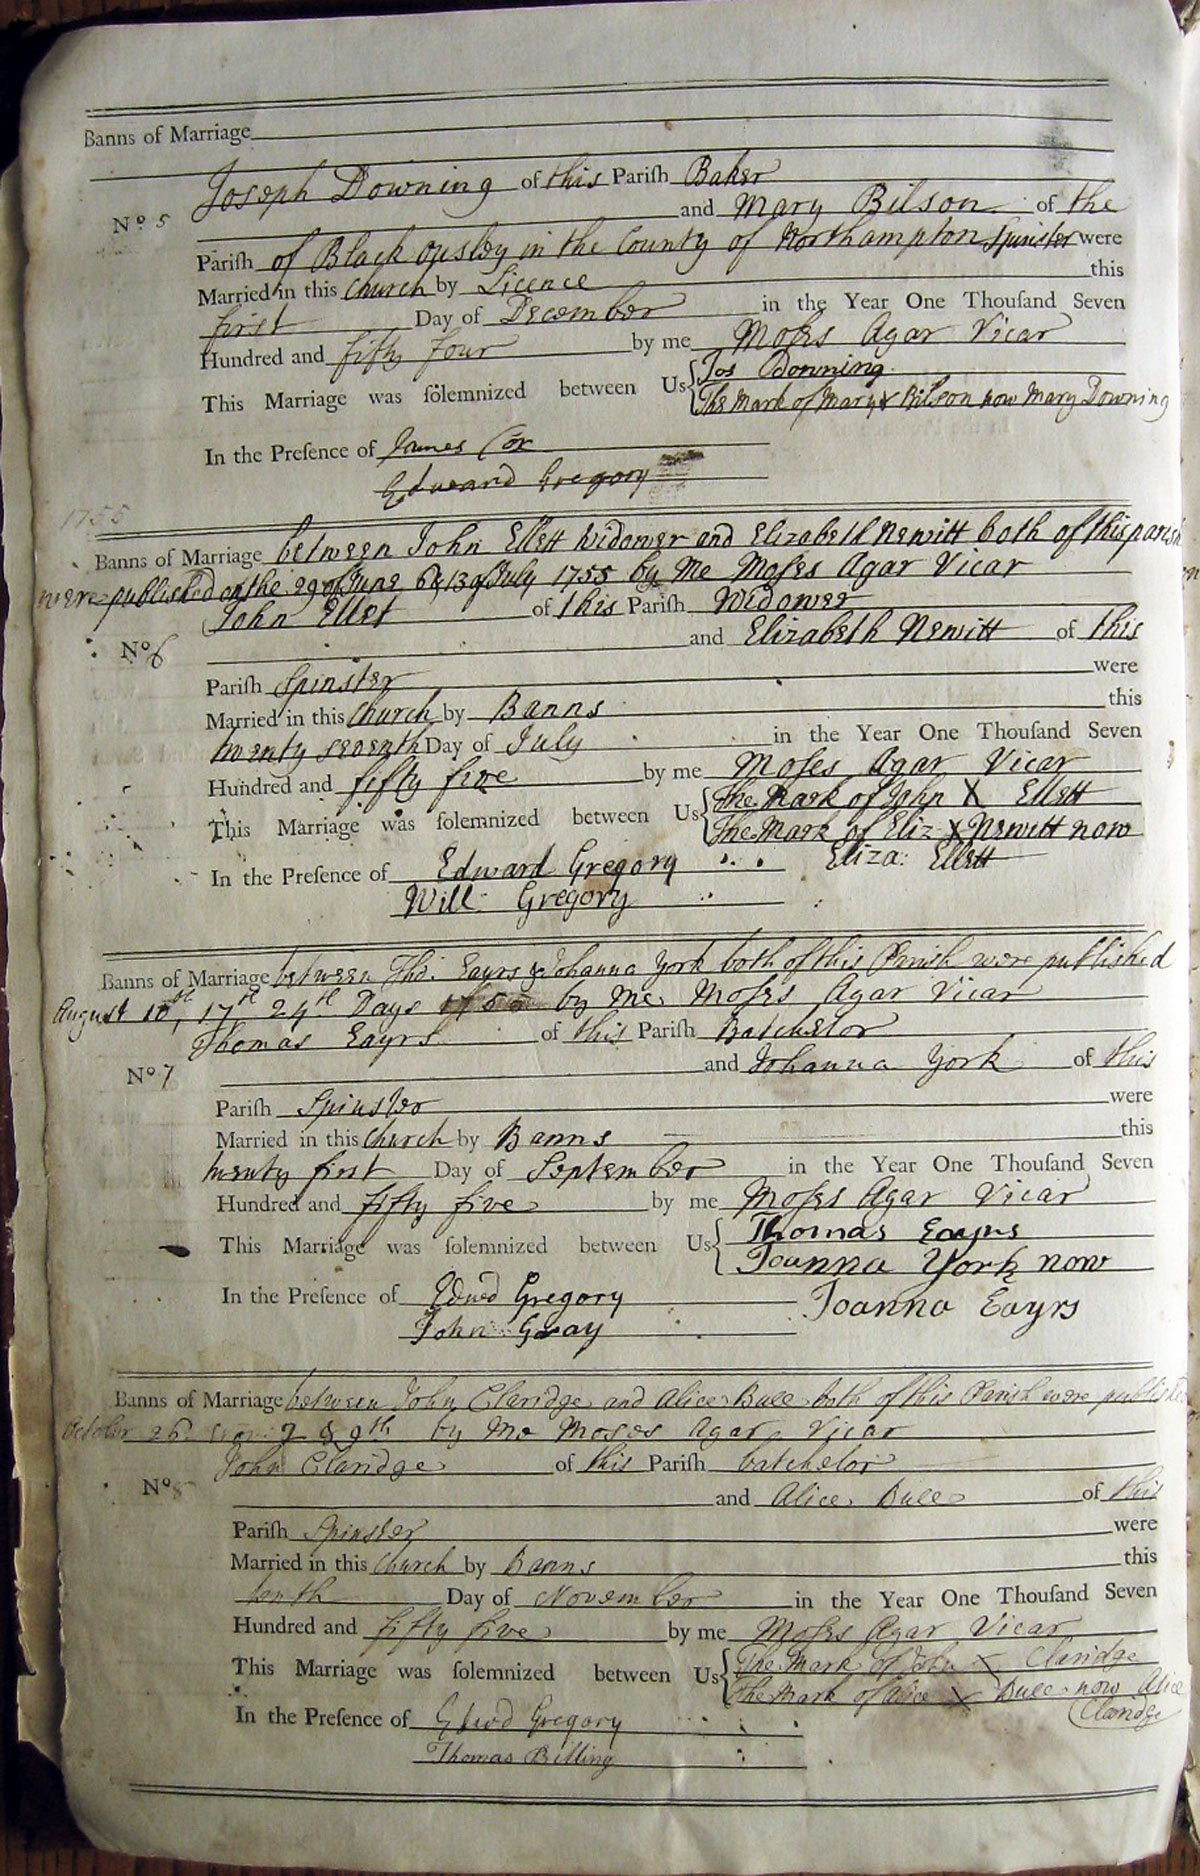 Banns of Marriage
Joseph Downing of this Parish Baker
No 5 and Mary Bilson of the
Pariſh of Black in the County of Northampton Spinster were
Married in this Church by Licence this
first Day of December in the Year One Thouſand Seven
Hundred and fifty four by me Moſes Agar Vicar
This Marriage was ſolemnized between Us Jos Downing
The Mark of Mary X Bilson now Mary Downing
In the Preſence of James Cox
Edward Gregory
1755
Banns of Marriage between John Ellett Widower and Elizabeth Newitt both of this parish
were published on the 29 of June 6 & 13 of July 1755 by Me Moſes Agar Vicar
John Ellet of this Pariſh Widower
No 6 and Elizabeth Newitt of this
Pariſh Spinster were
Married in this Church by Banns this
twenty seventh Day of July in the Year One Thouſand Seven
Hundred and fifty five by me Moſes Agar Vicar
This Marriage was ſolemnized between Us The Mark of John X Ellett
The Mark of Eliz: X Newitt now
In the Preſence of Edward Gregory Eliza: Ellett
Will: Gregory
Banns of Marriage between Tho: Eayrs & Johanna York both of this Parish were published
August 10th, 17th 24th Days 1755 by Me Moſes Agar Vicar
Thomas Eayrs of this Pariſh Batchelor
No 7 and Johanna York of this
Pariſh Spinster were
Married in this Church by Banns this
twenty first Day of September in the Year One Thouſand Seven
Hundred and fifty five by me Moſes Agar Vicar
This Marriage was ſolemnized between Us Thomas Eayrs
Joanna York now
In the Preſence of Edwd Gregory Joanna Eayrs
John Gray
Banns of Marriage between John Claridge and Alice Bull both of this Parish were published
October 26 2 & 9th by Me Moses Agar Vicar
John Claridge of this Pariſh batchelor
No 8 and Alice Bull of this
Pariſh Spinster were
Married in this Church by Banns this
tenth Day of November in the Year One Thouſand Seven
Hundred and fifty five by me Moſes Agar Vicar
This Marriage was ſolemnized between Us The Mark of John X Claridge
The Mark of Alice X Bull now Alice
In the Preſence of Edwd Gregory Claridge
Thomas Billing